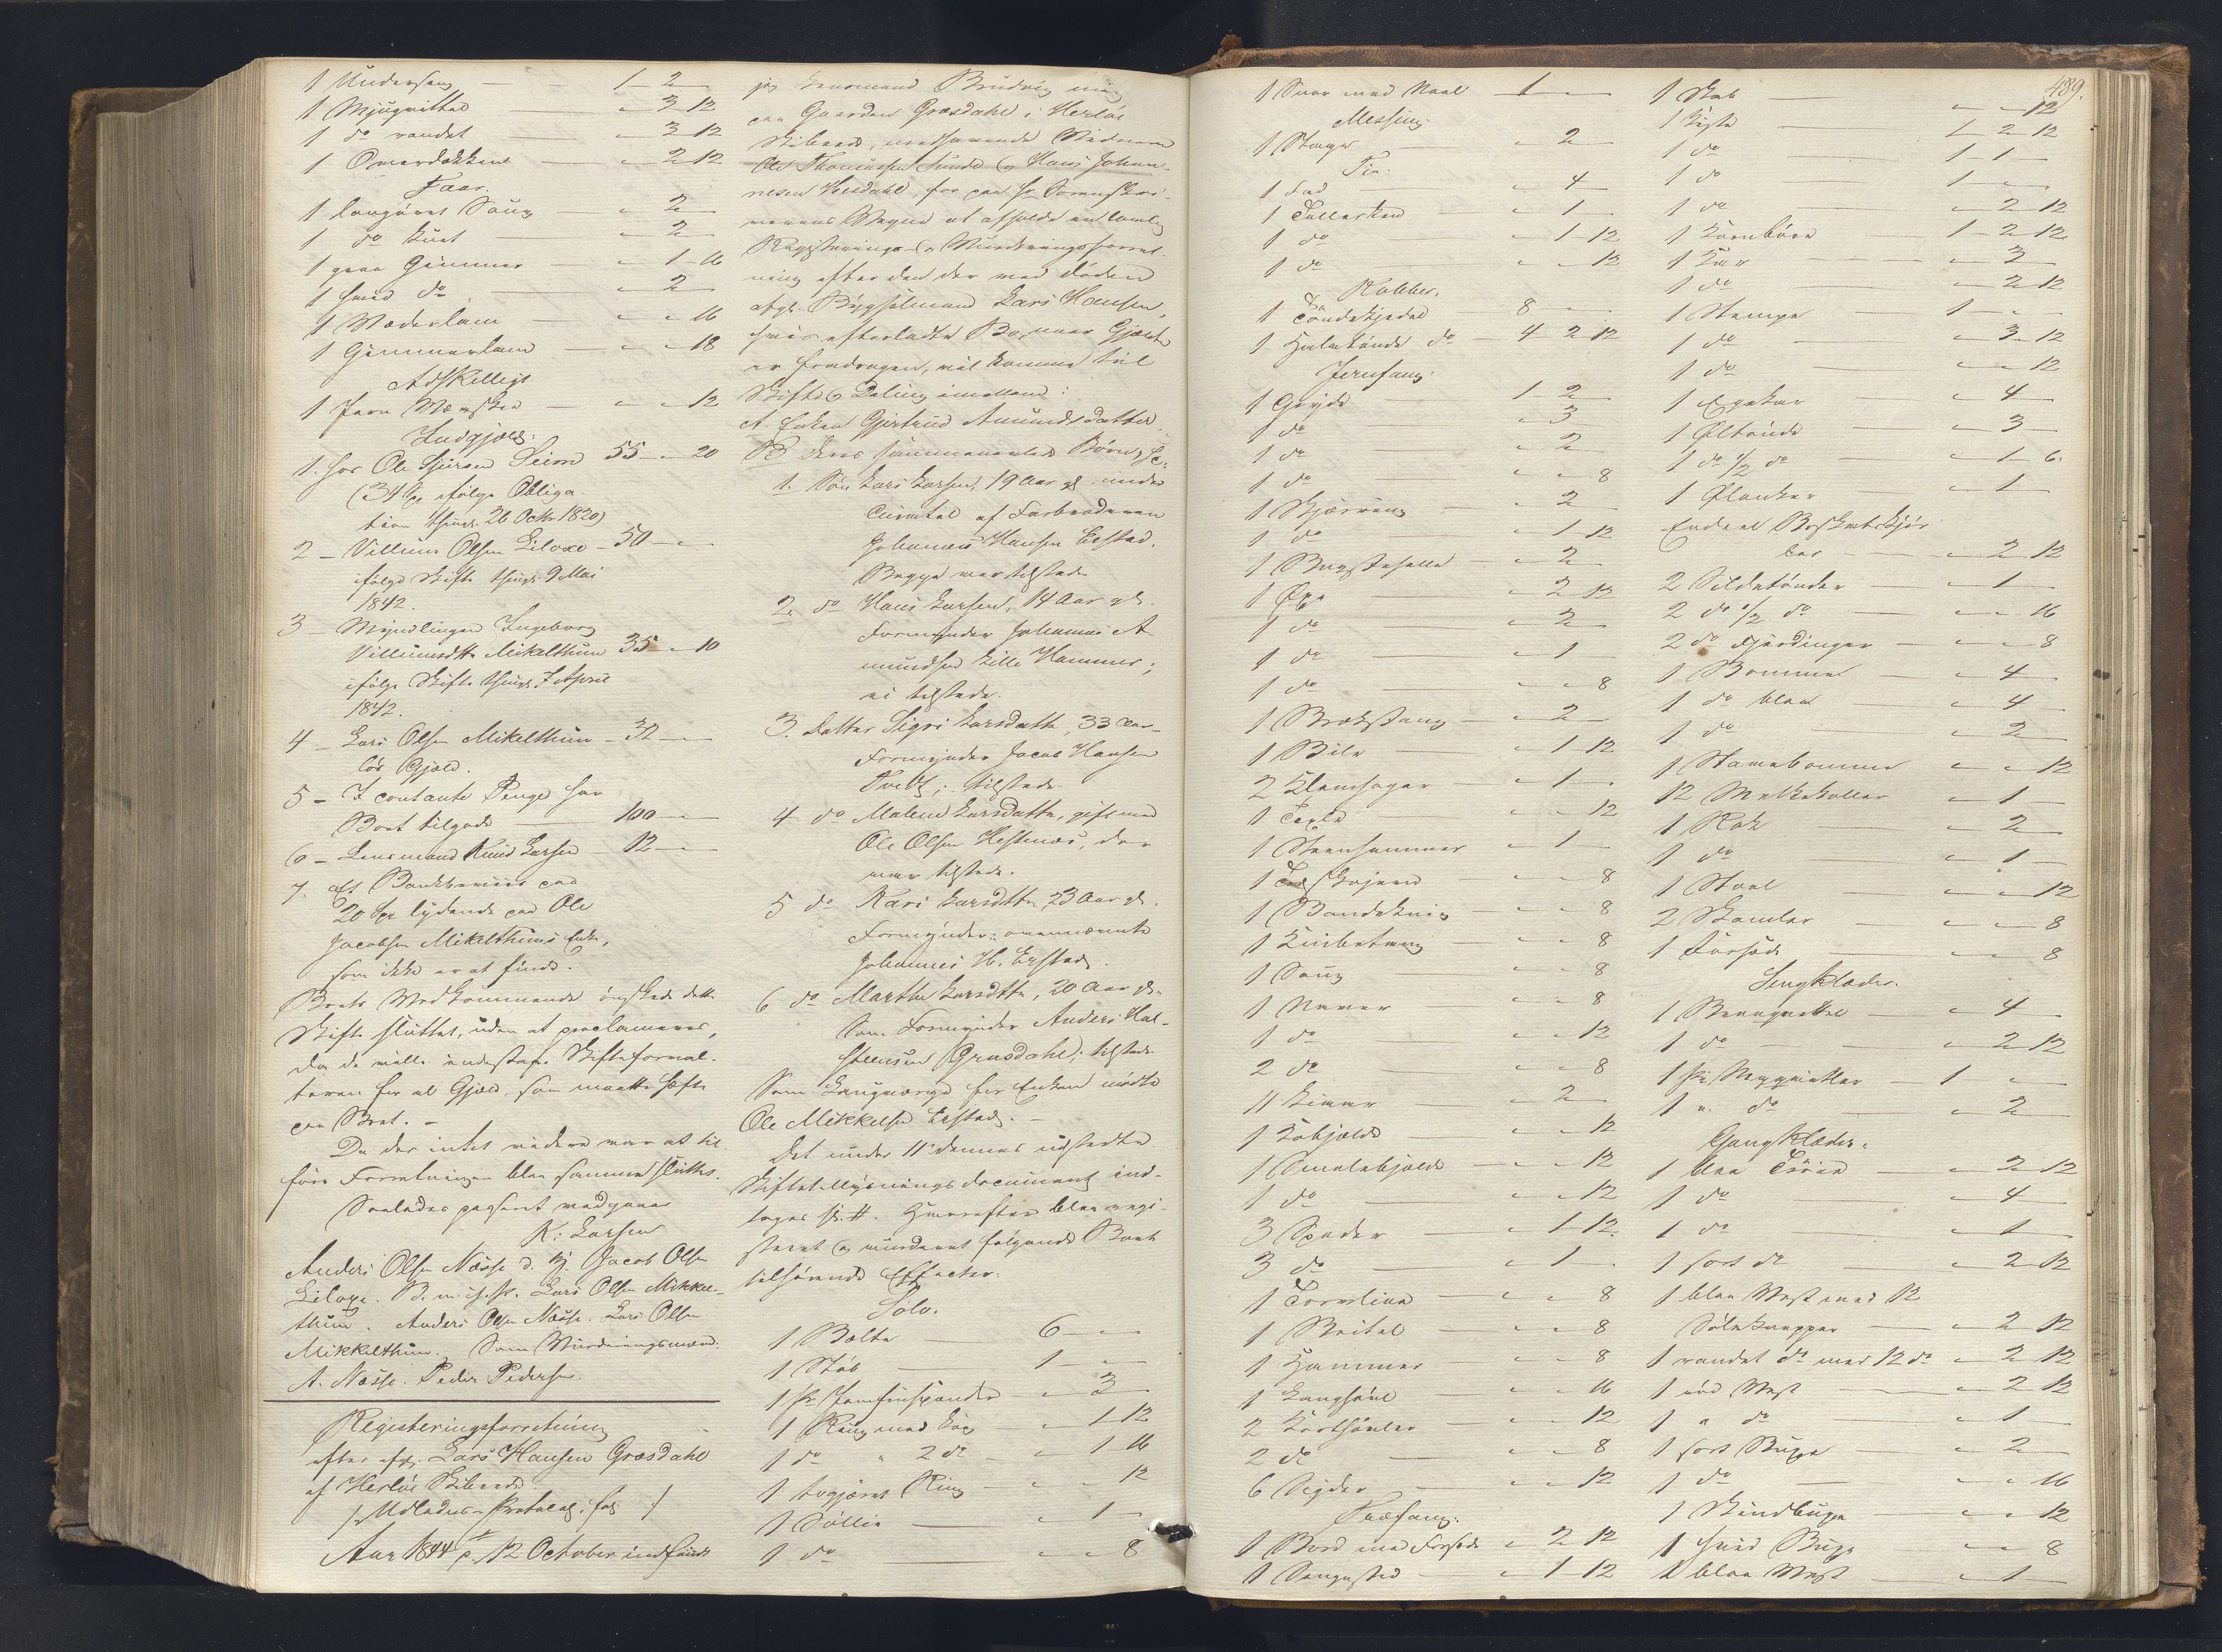 1 Undersæng — 1 - 2 -
1 Myugvittel — - 3 - 12
1 do randet — - 3 - 12
1 Overdækken — - 2 - 12
Faar.
1 Saug — - 2 -
1 do — - 2 -
1 graa Gimmer — - 1 - 16
1 hvid do — - 2 -
1 Væderlam — - - 16
1 Gimmerlam — - - 18
Adskelligt
1 Jern — - - 12
Indgjæld:
1. hos Ole Sjursen Seim 55 - - 20
(34 Spd ifølge Obliga-
tion thingl. 26 Octbr 1820)
2 - Villum Olsen Liloxe - 50 - -
ifølge Skifte thingl. 9 Mai
1842.
3 - Myndlingen Ingeborg
Villumsdtt Mikelthun 35 - 10
ifølge Skifte thingl. 7 April
1842.
4 - Lars Olsen Mikelthun - 32 - -
løs Gjæld.
5 - I contante Penge har
Boet tilgode — 100 - -
6 - Lensmand Knud Larsen - 12 - -
7. Et Bankbeviis paa
20 Spd lydende paa Ole
Jacobsen Mikelthuns Enke,
som ikke er at finde.
Boets Vedkommende ønskede dette
Skifte sluttet, uden at proclameres,
da de ville indestaae Skifteforval-
teren for al Gjæld, som maatte hæfte
paa Boet. -
Da der intet videre var at til-
føre Forretningen blev samme sluttet.
Saaledes passeret medgives
K: Larsen
Anders Olsen Næsse d. y. Jacob Olsen
Liloxe. Lars Olsen Mikkel-
thun. Anders Olsen Næsse. Lars Olsen
Mikkelthun. Som Vurderingsmænd:
A. Næsse. Peder Pedersen.
Registeringsforretning
efter afg. Lars Hansen Græsdahl
af Herløe Skibrede
Aar 1844 d. 12 October indfandt
jeg Lensmand Brudvig mig
paa Gaarden Græsdahl i Herløe
Skibrede, medhavende Vidnerne
Ole Thomassen Sunde og Hans Johan-
nesen Vesdahl, for paa Hr Sorenskri-
verens Vegne at afholde en lovlig
Registrerings- og Vurderingsforret-
ning efter den der ved Døden
afg. Bygselmand Lars Hansen,
hvis efterladte Bo, naar Gjælden
er fradragen, vil komme til
Skifte og Deling imellem:
A. Enken Gjertrud Amundsdatter
B deres sammenavlede Børn,
1. Søn Lars Larsen, 19 Aar gl. under
Curatel af Farbroderen
Johannes Hansen Erstad.
Begge var tilstede
2. do Hans Larsen, 14 Aar gl.
Formynder Johannes A-
mundsen Lille Hammer;
ei tilstede.
3. Datter Sigri Larsdatter, 33 Aar
Formynder Jacob Hansen
Tveit; tilstede.
4 do Malene Larsdatter, gift med
Ole Olsen Hestnæs, der
var tilstede.
5 do Kari Larsdtter 23 Aar gl.
Formynder: ovennævnte
Johannes H. Erstad.
6 do Martha Larsdtter, 20 Aar gl.
Som Formynder Anders Hal-
steensen Græsdahl; tilstede
Som Laugværge for Enken mødte
Ole Mikkelsen Erstad. -
Det under 11te dennes udstedte
Skiftetillysningsdocument ind-
tages sk. #. Hvorefter blev regi-
streret og vurderet følgende Boet
tilhørende Effecter:
Sølv.
1 Bælte — 6 - -
1 Støb — 1 - -
1 Pr — - 3 -
1 Ring med Løv — - 1 - 12
1 do " 2 do — - 1 - 16
1 Ring — - - 12
1 Søllie — - 1 -
1 do — - - 8
489.
1 Snor med Naal — 1 - -
Messing
1 Stage — - 2 -
Tin:
1 Fad — - 4
1 Tallerken — - 1 -
1 do — - 1 - 12
1 do — - - 12
Kobber.
1 Tøndekjedel 8 - -
1 Halvtønde do - 4 - 2 - 12
Jernfang:
1 Gryde — 1 - 2 -
1 do — - 3
1 do — - 2
1 do — - - 8
1 Skjæring — - 2
1 do — - 1 - 12
1 Bagstehelle — - 2 -
1 Øxe — - 2 - 12
1 do — - 2 -
1 do — - 1
1 do — - - 8
1 Brækstang — - 2 -
1 Bile — - 1 - 12
2 — - 1 -
1 Texle — - - 12
1 Steenhammer — - 1 -
1 — - - 8
1 Bandekniv — - - 8
1 — - - 8
1 Saug — - - 8
1 Naver — - - 8
1 do — - - 12
2 do — - - 8
11 Liaar — - 2 -
1 Kobjælde — - - 12
1 Smalebjælde — - - 12
1 do — - - 12
3 Spader — - 1 - 12
3 do — - 1 -
1 Torvlina — - - 8
1 Beitel — - - 8
1 Hammer — - - 8
1 Langhøvl — - - 16
2 Korthøvler — - - 12
2 do — - - 8
6 Sigder — - - 12
Træfang:
1 Bord med Forsæde - 2 - 12
1 Sengested — - 1 - 12
1 Skab — - - 12
1 Kiste — 1 - 2 - 12
1 do — 1 - 1 -
1 do — 1 - -
1 do — - 2 - 12
1 Kornbøre — 1 - 2 - 12
1 Kar — - 3 -
1 do — - 2 - 12
1 Stampe — 1 - -
1 do — - 3 - 12
1 do — - - 12
1 Egekar — - 4
1 Øltønde — - 3 -
1 do 1/2 do — - 1 - 6
1 Ølanker — - 1
Endeel Boskabskjør-
ler — - 2 - 12
2 Sildetønder — - 1 -
2 do 1/2 do — - - 16
2 do Fjerdinger — - - 8
1 Bomme — - 4 -
1 do blaa — - 4
1 do — - 2
1 Stamebomme — - - 12
12 Melkekoller — - 1 -
1 Rok — - 2
1 do — - 1 -
1 Stoel — - - 12
2 Skamler — - - 8
1 Forsæde — - - 8
Sengklæder.
1 — - 4
1 do — - 2 - 12
1 Pr — 1 - -
1 " do — - 2
Gangklæder.
1 blaa Trøie — - 2 - 12
1 do — - 4
1 do — - 1
1 sort do — - 2 - 12
1 blaa Vest med 12
Sølvknapper — - 2 - 12
1 randet do med 12 do - 2 - 12
1 rød Vest — - 2 - 12
1 " do — - 1
1 sort Buxe — - 2
1 do — - - 16
1 Skindbuxe — - - 12
1 hvid Buxe — - - 8
1 blaa Vest — - 1